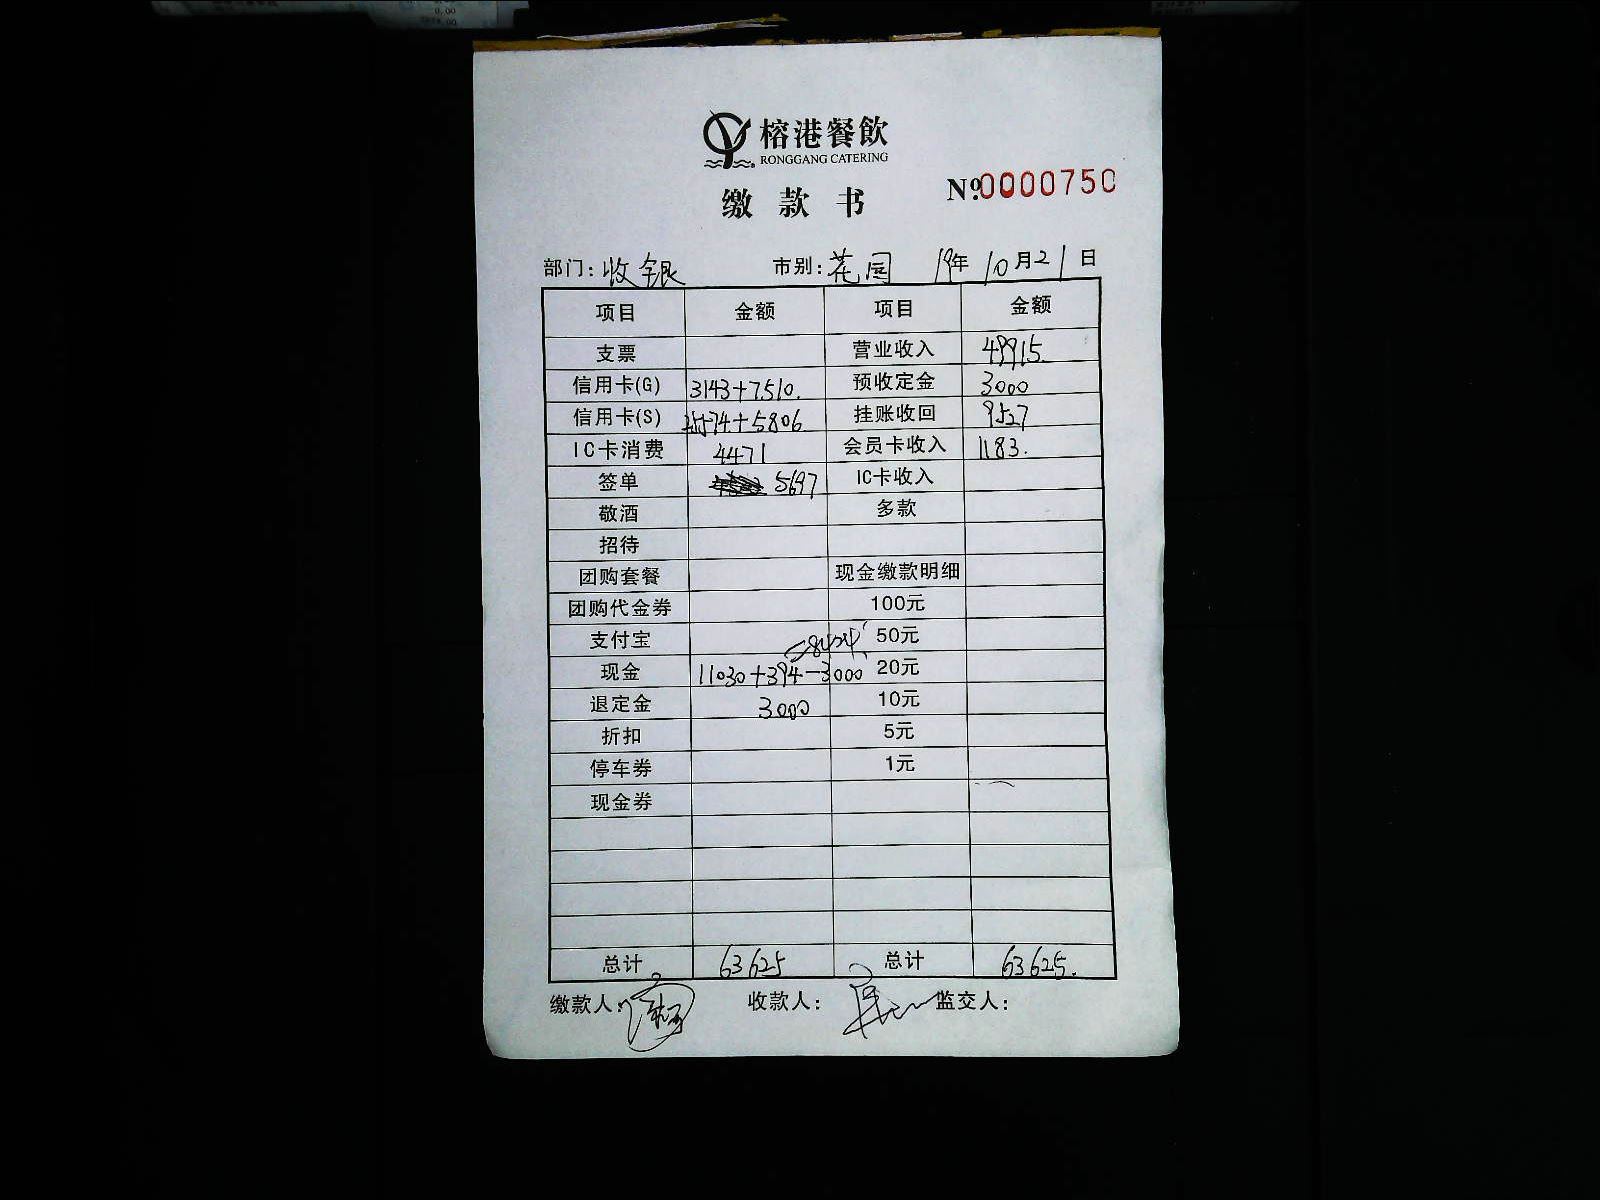 榕港餐飲
RONGGANG CATERING
缴款书
№0000750
部门：收银 市别：花园 19年10月21日
项目 金额 项目 金额
支票 营业收入 49915.
信用卡(G) 3143+7510. 预收定金 3000
信用卡(S) +5806 挂账收回 9527
IC卡消费 4471 会员卡收入 1183.
签单 5697 IC卡收入
敬酒 多款
招待
团购套餐 现金缴款明细
团购代金券 100元
支付宝 50元
=8424
现金 11030+394-3000 20元
退定金 3000 10元
折扣 5元
停车券 1元
现金券
总计 63625 总计 63625.
缴款人： 收款人： 监交人：